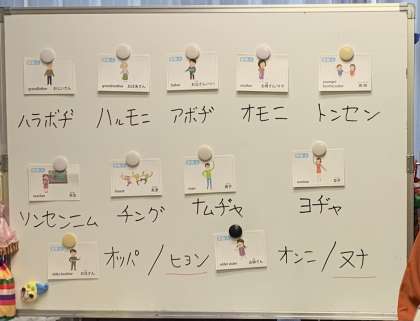 grandfather おじいさん
grandmother おばあさん
father お父さん/パパ
mother お母さん/ママ
younger brother/sister
ハラボヂ ハルモニ アボヂ オモニ トンセン
teacher 先生
friend 友達
man 男子
女子
ソンセンニム チング ナムヂャ ヨヂャ
older brother お兄さん
older sister お姉さん
オッパ/ヒョン オンニ/ヌナ